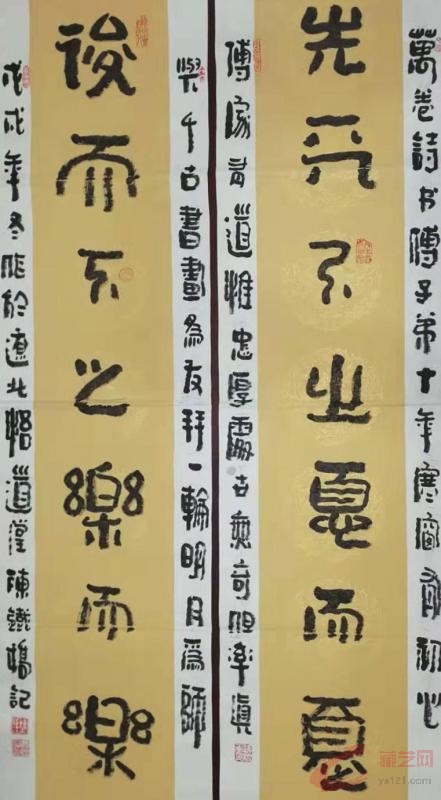 萬卷詩书傳子弟十年寒窗有初心
先天下之憂而憂
傳家有道惟忠厚處世無奇但率真
與千古書畫為友拜一輪明月為師
後天下之樂而樂
戊戌年冬作於遼北悟道堂陳鐵橋記
藏艺网
ys121.com